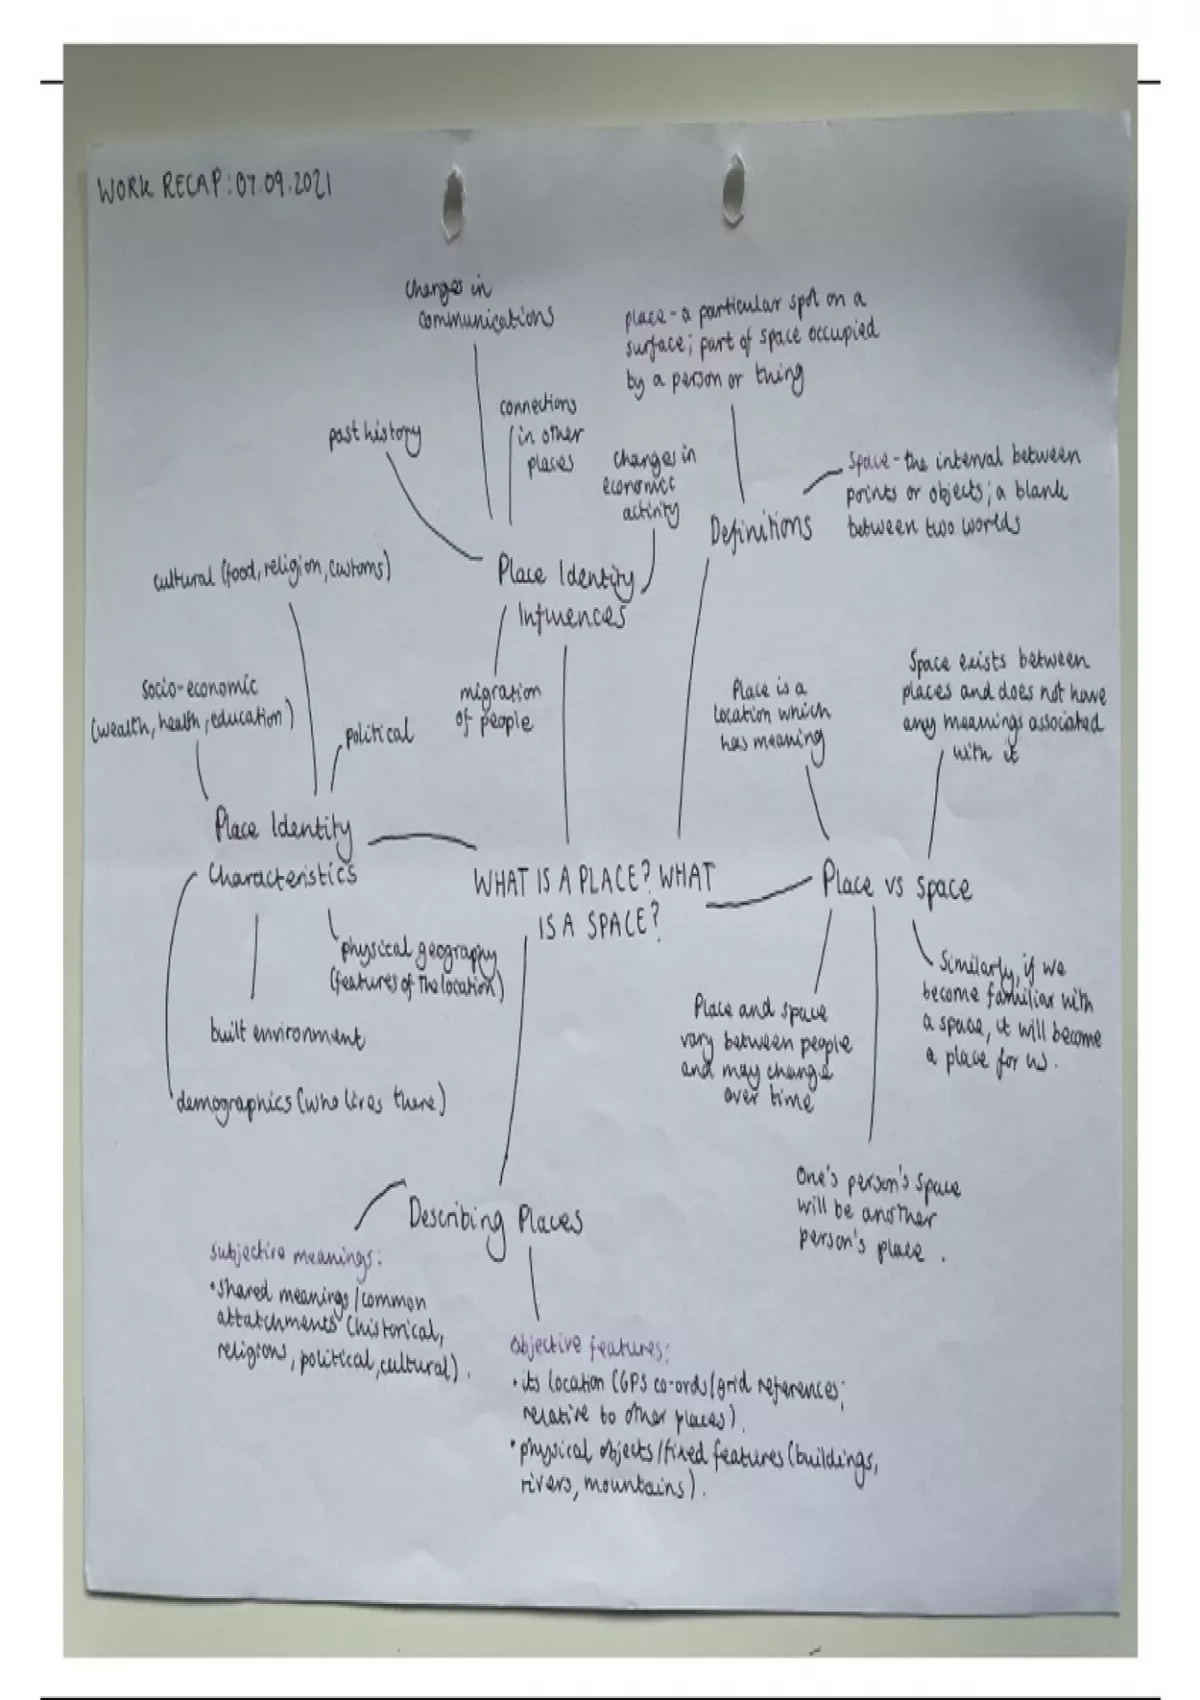 WORK RECAP: 07.09.2021
changes in
communications
place - a particular spot on a
surface; part of space occupied
by a person or thing
connections
in other
places
past history
changes in
economic
activity
Space - the interval between
points or objects; a blank
between two worlds
Definitions
cultural (food, religion, customs)
Place Identity
Influences
migration
of people
socio-economic
(wealth, health, education)
political
Place is a
location which
has meaning
Space exists between
places and does not have
any meanings associated
with it
Place Identity
Characteristics
WHAT IS A PLACE? WHAT
IS A SPACE?
Place vs Space
physical geography
(features of the location)
built environment
demographics (who lives there)
Place and space
vary between people
and may change
over time
Similarly, if we
become familiar with
a space, it will become
a place for us.
One's person's space
will be another
person's place.
Describing Places
subjective meanings:
• shared meanings/common
attatchments (historical,
religions, political, cultural).
objective features:
• its location (GPS co-ords/grid references;
relative to other places).
• physical objects/fixed features (buildings,
rivers, mountains).